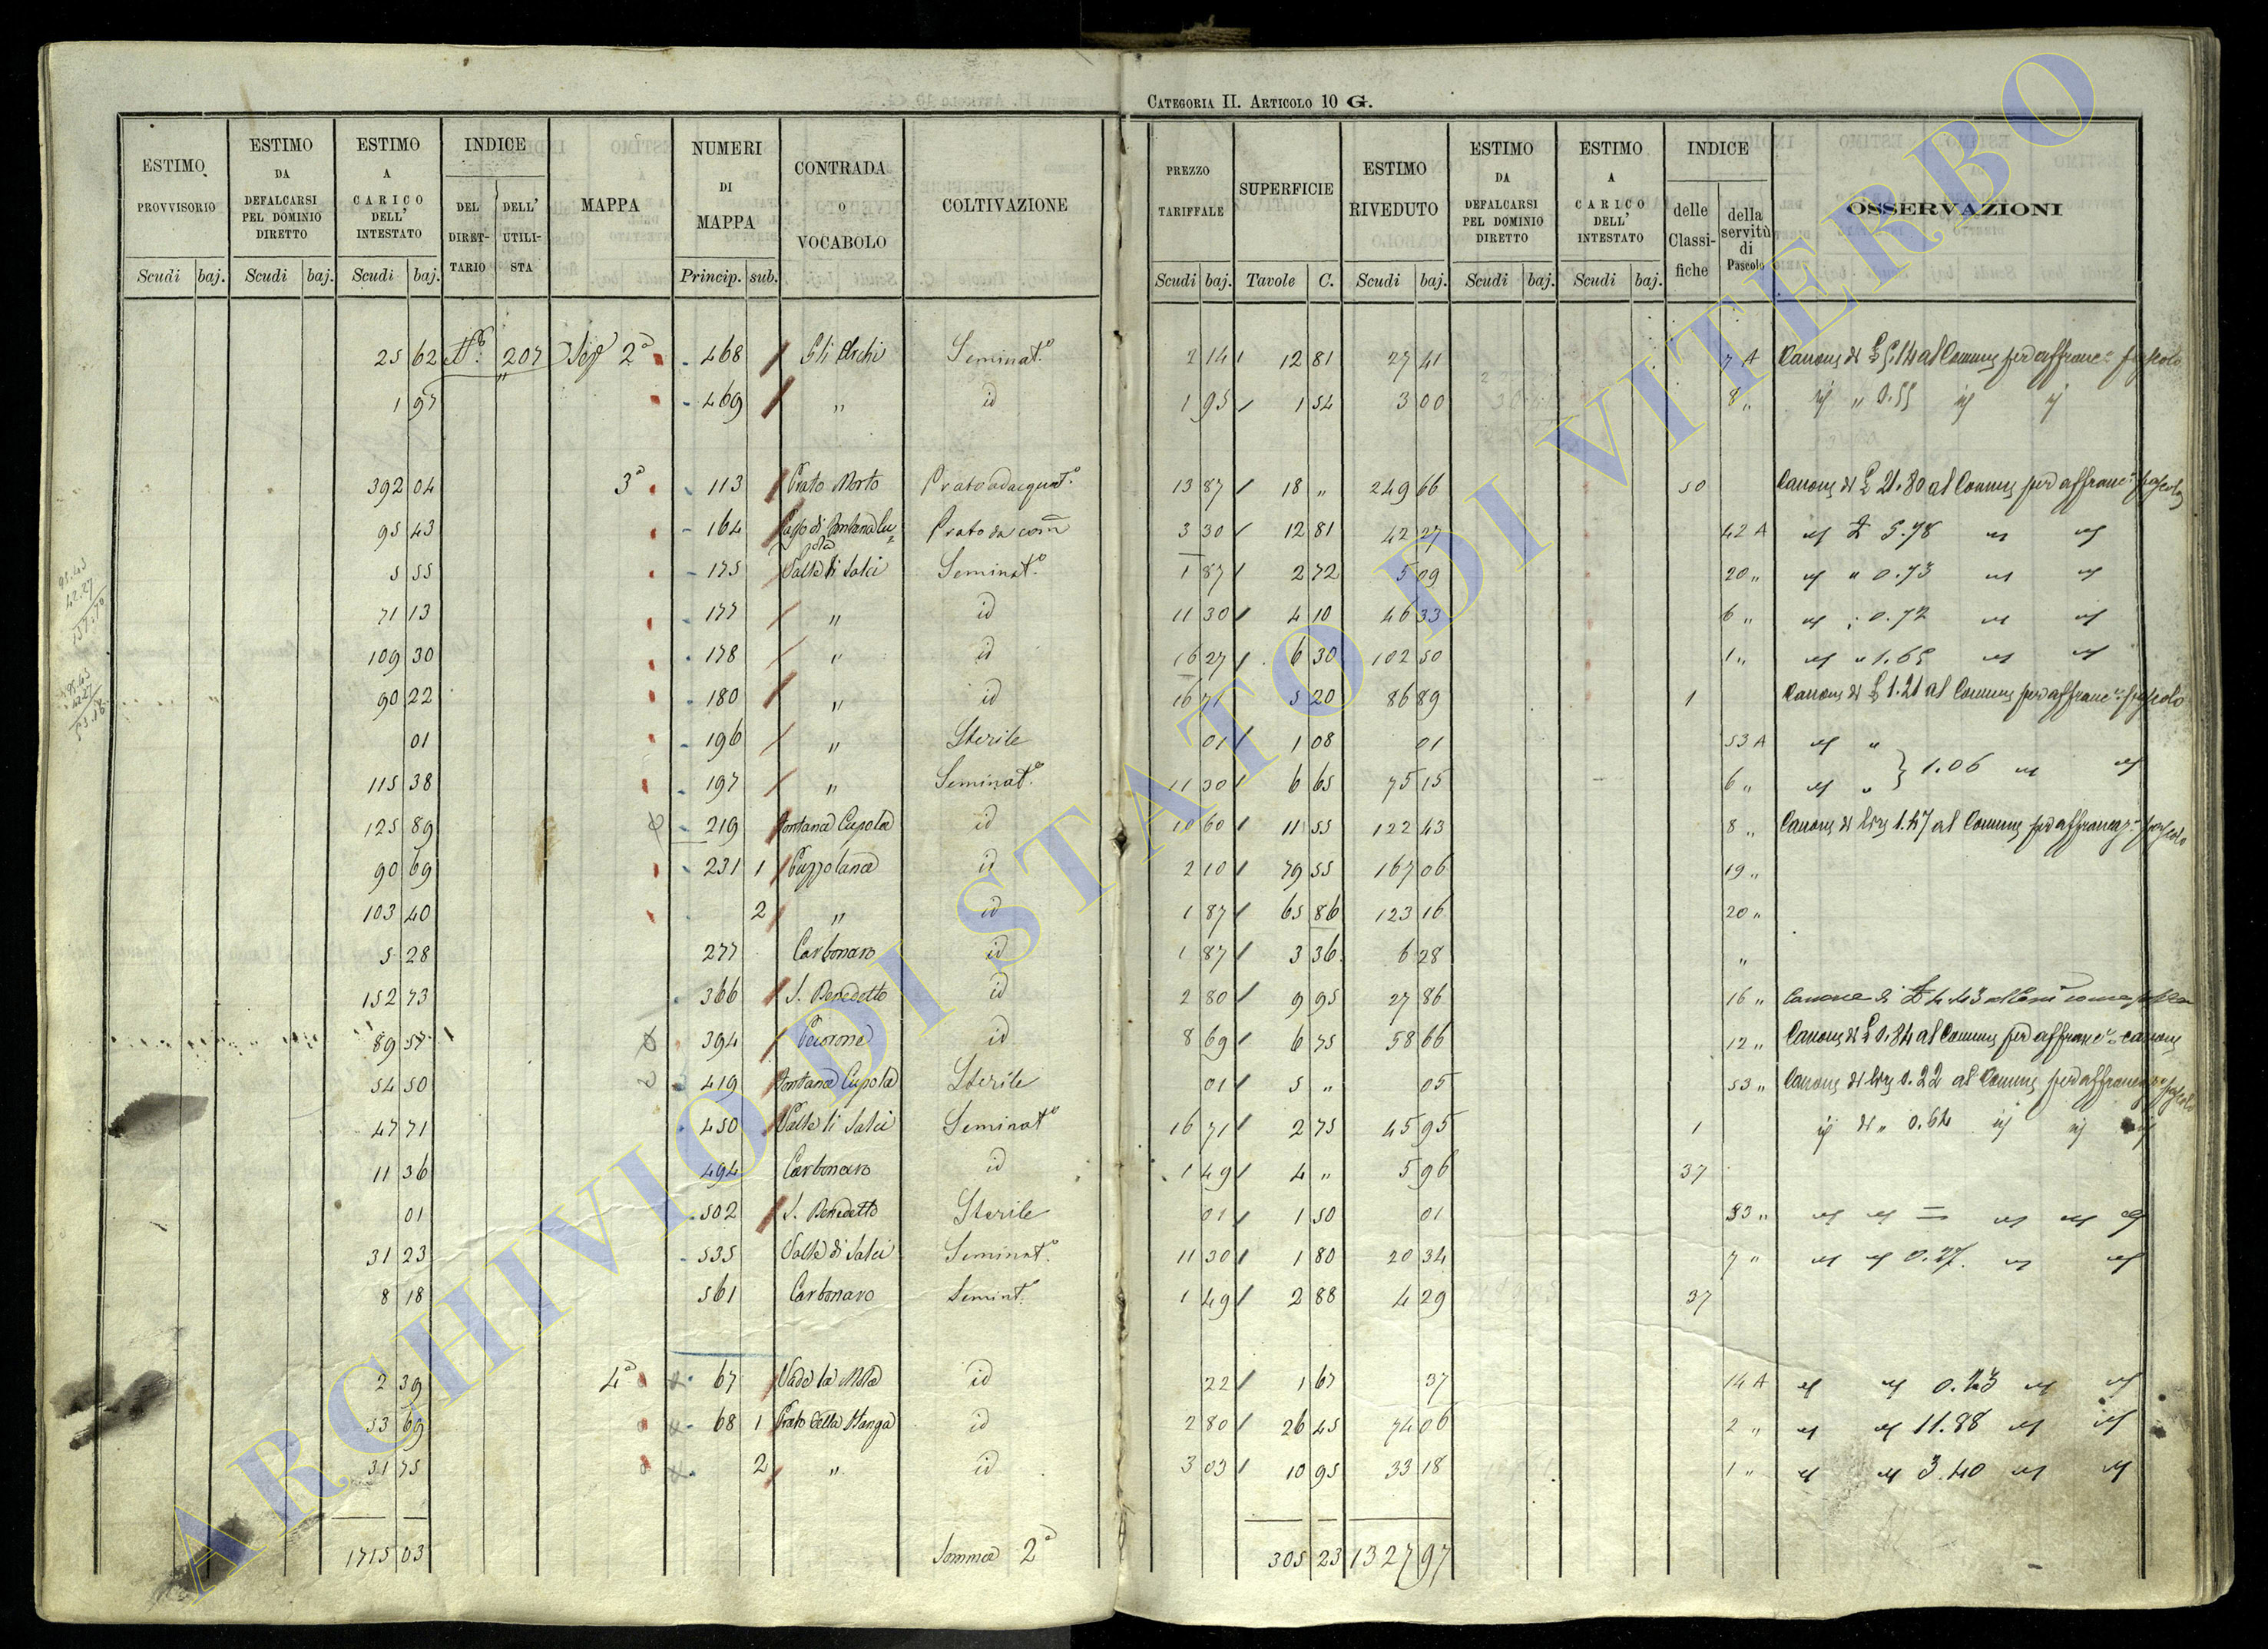 CATEGORIA II. ARTICOLO 10 G.
ESTIMO PROVVISORIO Scudi baj.
ESTIMO DA DEFALCARSI PEL DOMINIO DIRETTO Scudi baj.
ESTIMO A CARICO DELL' INTESTATO Scudi baj.
INDICE DEL DIRETTARIO DELL' UTILISTA
MAPPA
NUMERI DI MAPPA Princip. sub.
CONTRADA O VOCABOLO
COLTIVAZIONE
PREZZO TARIFFALE Scudi baj.
SUPERFICIE Tavole C.
ESTIMO RIVEDUTO Scudi baj.
ESTIMO DA DEFALCARSI PEL DOMINIO DIRETTO Scudi baj.
ESTIMO A CARICO DELL' INTESTATO Scudi baj.
INDICE delle Classifiche della servitù di Pascolo
OSSERVAZIONI
25 62 207 2ª 468 Gli Archi Seminatº 2 14 12 81 27 41 7 A Canone di £ 5.14 al Comune per affranc.e pascolo
1 97 469 " id 1 95 1 54 3 00 8 " id " 0.55 id id
392 04 3ª 113 Prato Morto Prato adacquat.º 13 87 18 " 249 66 50 Canone di £ 21.80 al Comune per affranc.e pascolo
95 43 164 Prato da com 3 30 12 81 42 27 42 A id £ 5.78 id id
5 55 175 Valle di Salci Seminatº 1 87 2 72 5 09 20 " id " 0.73 id id
71 13 177 " id 11 30 4 10 46 33 6 " id 0.72 id id
109 30 178 " id 16 27 6 30 102 50 1 " id " 1.65 id id
90 22 180 " id 16 71 5 20 86 89 1 Canone di £ 1.21 al Comune per affranc.e pascolo
01 196 " Sterile 01 1 08 01 53 A id "
115 38 197 " Seminatº 11 30 6 65 75 15 6 " id " } 1.06 id id
125 89 219 Fontana Cupola id 10 60 11 55 122 43 8 " Canone di lire 1.47 al Comune per affrancaz.e pascolo
90 69 231 1 Puzzolana id 2 10 79 55 167 06 19 "
103 40 2 " id 1 87 65 86 123 16 20 "
5 28 277 Carbonaro id 1 87 3 36 6 28 "
152 73 366 S. Benedetto id 2 80 9 95 27 86 16 " Canone di £ 4.43
89 57 394 id 8 69 6 75 58 66 12 " Canone di £ 0.84 al Comune per affranc.e canone
54 50 419 Fontana Cupola Sterile 01 5 " 05 53 " Canone di lire 0.22 al Comune per affrancaz.e pascolo
47 71 450 Valle di Salci Seminatº 16 71 2 75 45 95 1 id di " 0.64 id id
11 36 494 Carbonaro id 1 49 4 " 5 96 37
01 502 S. Benedetto Sterile 01 1 50 01 53 " id id = id id id
31 23 535 Valle di Salci Seminatº 11 30 1 80 20 34 7 " id id 0.27. id id
8 18 561 Carbonaro Seminatº 1 49 2 88 4 29 37
2 39 4ª 67 Vado la Mola id 22 1 67 37 14 A id id 0.23 id id
53 69 68 1 Prato della Stanga id 2 80 26 45 74 06 2 " id id 11.88 id id
31 75 2 " id 3 03 10 95 33 18 1 " id id 3.40 id id
1715 03 Somma 2ª 305 23 1327 97
ARCHIVIO DI STATO DI VITERBO